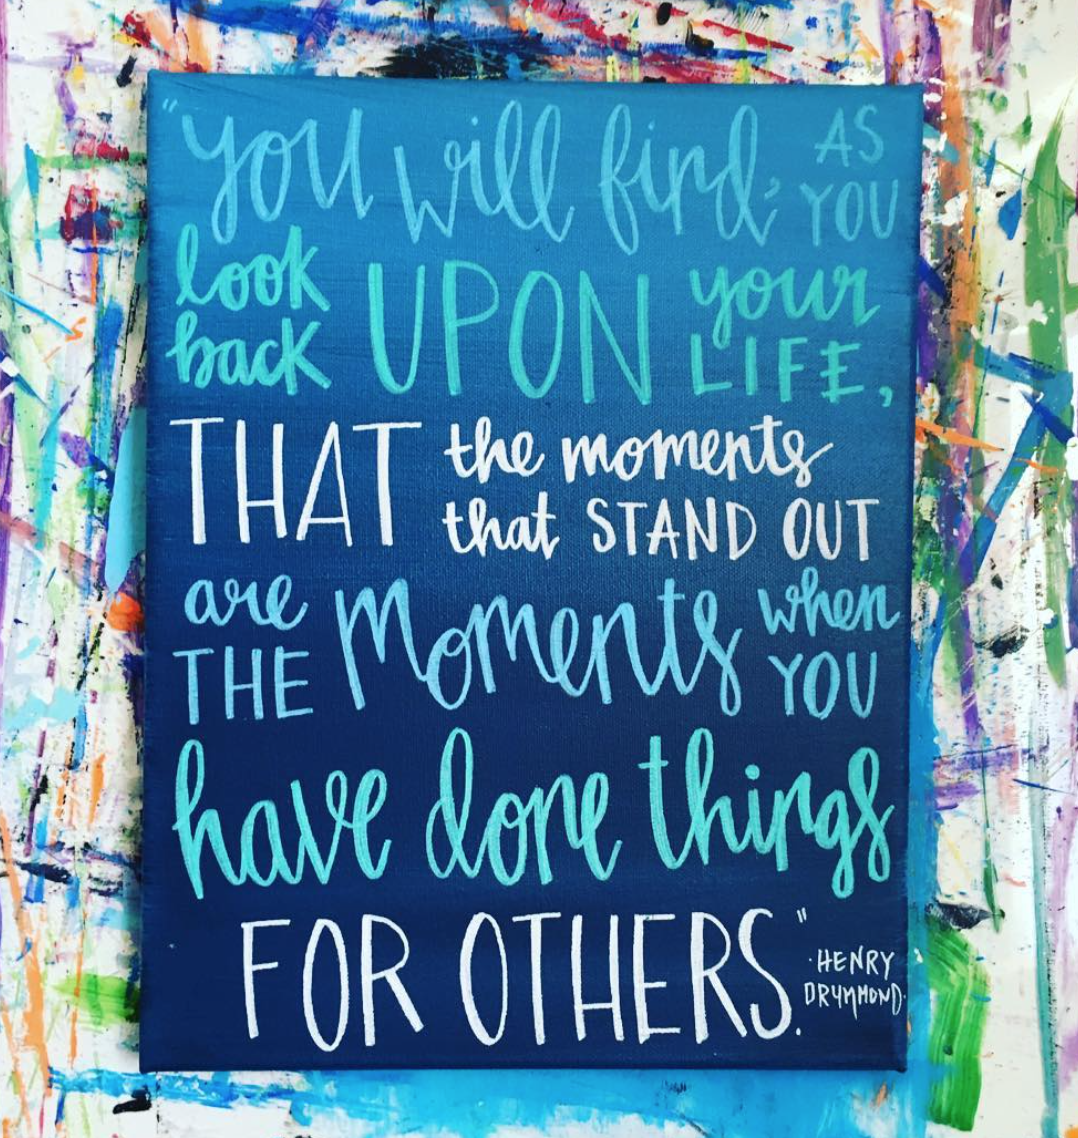 "you will find, AS YOU
look back UPON your LIFE,
THAT the moments that STAND OUT
are THE moments when YOU
have done things
FOR OTHERS."
·HENRY
DRUMMOND·